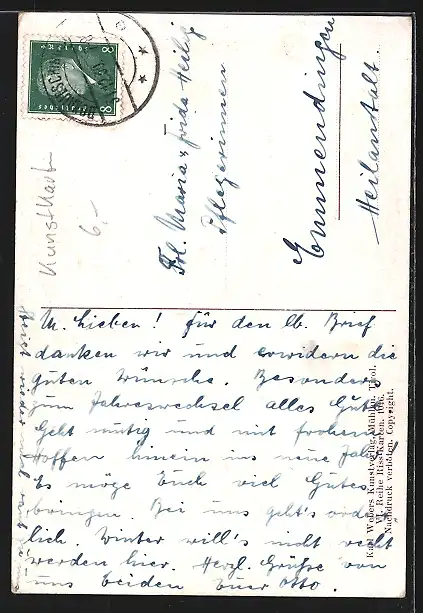 Kunstkarte
6.-
Frl. Maria & Frida Heilig
Pflegerinnen
Emmendingen
Heilanstalt.
M. Lieben! Für den lb. Brief
danken wir und erwidern die
guten Wünsche. Besonders
zum Jahreswechsel alles Gute.
Geht mutig und mit frohem
Hoffen hinein ins neue Jahr.
Es möge Euch viel Gutes
bringen. Bei uns geht's ordent
lich. Winter will's nicht recht
werden hier. Herzl. Grüße von
uns beiden Euer Otto.
Karl Webers Kunstverlag, Mühlau, Tirol.
VI. Reihe Riss-Karten,
Nachdruck verboten. Copyright.
8 8